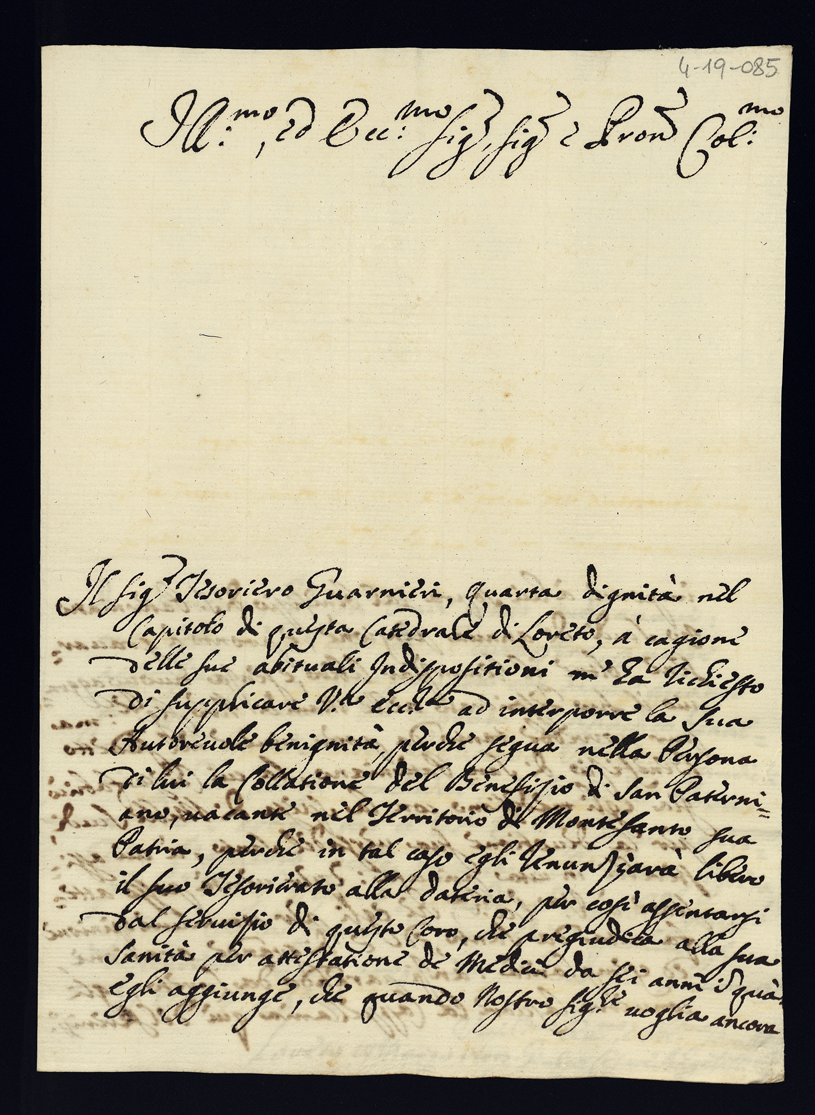 4-19-085
Ill:mo, ed Ecc:mo Sig.r, Sig.r e Pron Col:mo
Il Sig.r Tesoriero Guarnieri, quarta dignità nel
Capitolo di questa Catedrale di Loreto, à cagione
delle sue abituali Indispositioni m'ha richiesto
di supplicare V.ra Ecc.za ad interporre la sua
Autorevole benignità, perche segua nella Persona
di lui la Collatione del Benefizio di San Paterni=
ano, vacante nel Territorio di Montesanto sua
Patria, perche in tal caso egli renunzjarà libero
il suo Tesorierato alla dateria, per così assentarsi
dal servizio di questo Coro, che pregiudica alla sua
sanità per attestatione de Medici da sei anni in quà.
egli aggiunge, che quando Nostro Sig.re voglia ancora